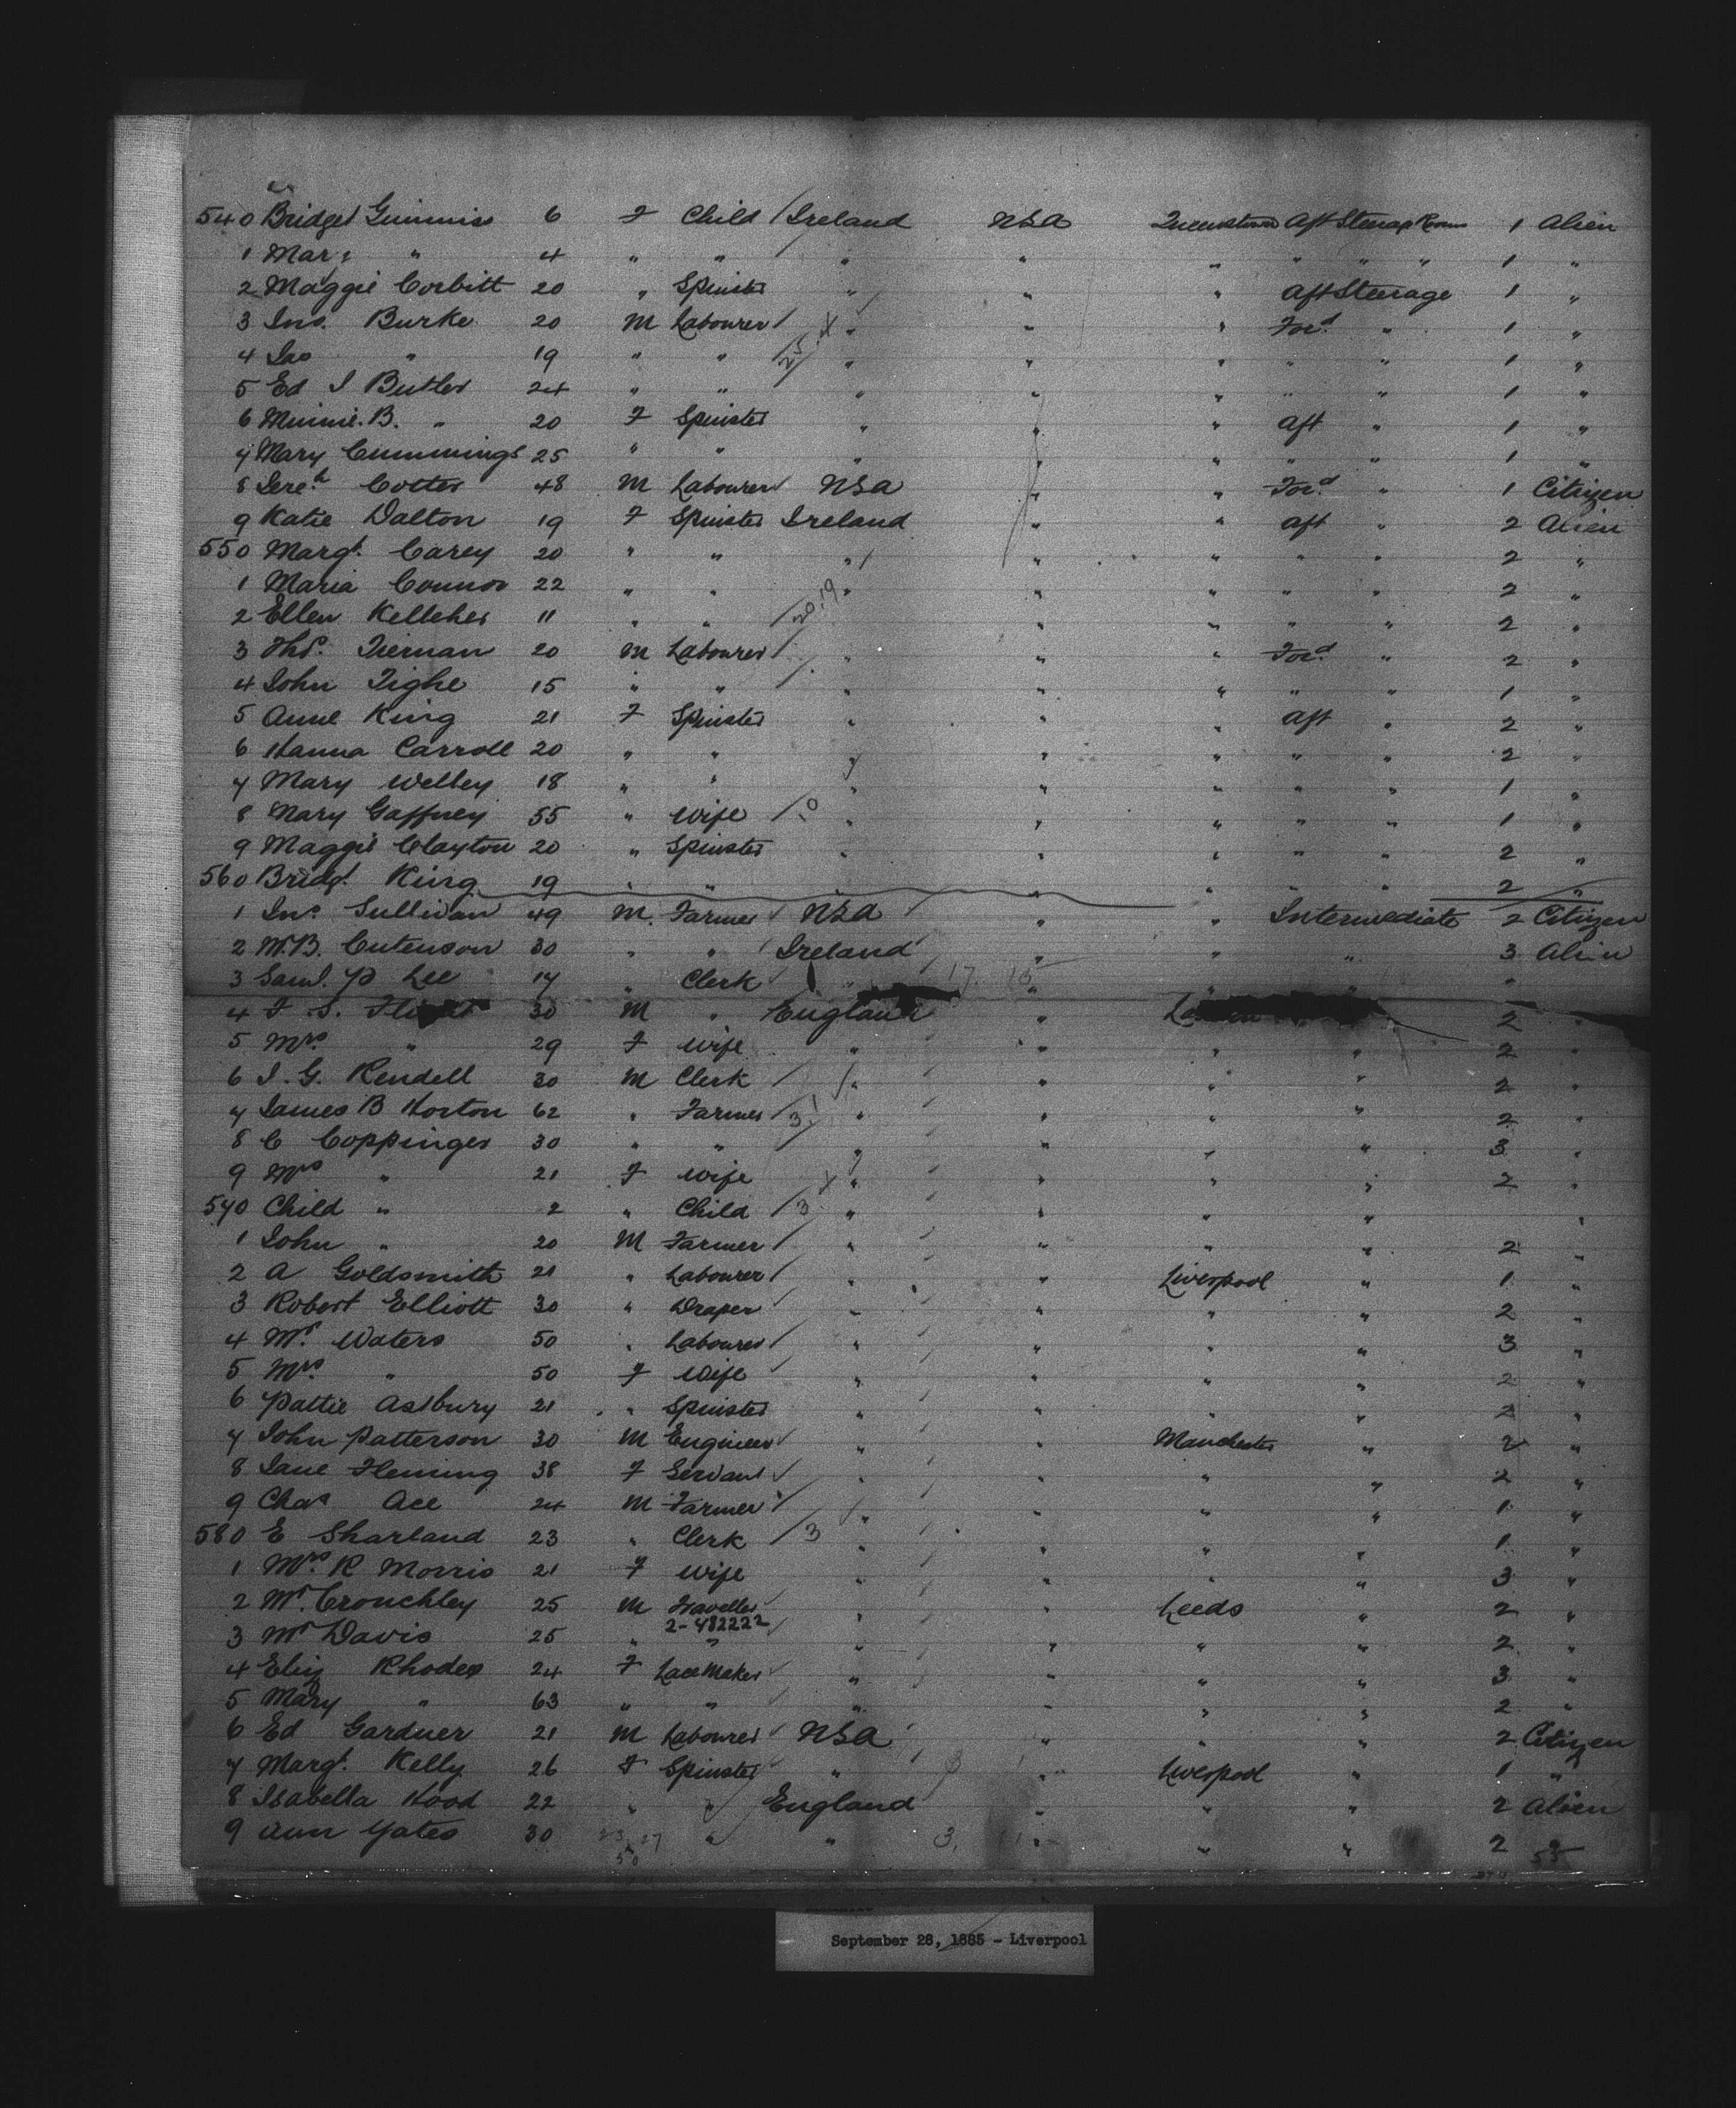 540 Bridget Gimmis 6 F Child / Ireland USA Queenstown Aft Steerage Rooms 1 Alien
1 Mary " 4 " " " " " " " " 1 "
2 Maggie Corbitt 20 " Spinster " " " Aft Steerage 1 "
3 Jno. Burke 20 M Labourer " " " Ford " 1 "
4 Jas " 19 " " " " " " " 1 "
5 Ed J Butler 24 " " " " " " " 1 "
6 Minnie. B. " 20 F Spinster " " " Aft " 1 "
7 Mary Cummings 25 " " " " " " " 1 "
8 Jereh Cotter 48 M Labourer USA " " Ford " 1 Citizen
9 Katie Dalton 19 F Spinster Ireland " " Aft " 2 Alien
550 Margt. Carey 20 " " " " " " " 2 "
1 Maria Connor 22 " " " " " " " 2 "
2 Ellen Kelleher 11 " " " " " " " 2 "
3 Thos. Tiernan 20 M Labourer " " " Ford " 2 "
4 John Tighe 15 " " " " " " " 1 "
5 Anne King 21 F Spinster " " " Aft " 2 "
6 Hanna Carroll 20 " " " " " " " 2 "
7 Mary Welley 18 " " " " " " " 1 "
8 Mary Gaffney 55 " Wife " " " " " 1 "
9 Maggie Clayton 20 " Spinster " " " " " 2 "
560 Bridgt. King 19 " " " " " " " 2 "
1 Jno Sullivan 49 M Farmer USA " " Intermediate 2 Citizen
2 W.B. Cutenson 30 " " Ireland " " " 3 Alien
3 Saml. P Lee 17 " Clerk " " " " "
4 F. S. 30 M " England " " 2 "
5 Mrs " 29 F Wife " " " " 2 "
6 J. G. Rendell 30 M Clerk " " " " 2 "
7 James B Horton 62 " Farmer " " " " 2 "
8 C Coppinger 30 " " " " " " 3 "
9 Mrs " 21 F Wife " " " " 2 "
570 Child " 2 " Child " " " " "
1 John " 20 M Farmer " " " " 2 "
2 A Goldsmith 21 " Labourer " " Liverpool " 1 "
3 Robert Elliott 30 " Draper " " " " 2 "
4 Mr. Waters 50 " Labourer " " " " 3 "
5 Mrs. " 50 F Wife " " " " 2 "
6 Pattie Astbury 21 " Spinster " " " " 2 "
7 John Patterson 30 M Engineer " " Manchester " 2 "
8 Jane Fleming 38 F Servant " " " " 2 "
9 Chas Ace 24 M Farmer " " " " 1 "
580 E Sharland 23 " Clerk " " " " 1 "
1 Mrs. R Morris 21 F Wife " " " " 3 "
2 Mr. Crouchley 25 M Traveller " " Leeds " 2 "
2-482222
3 Mr Davis 25 " " " " " " 2 "
4 Eliz Rhodes 24 F Lace Maker " " " " 3 "
5 Mary " 63 " " " " " " 2 "
6 Ed Gardner 21 M Labourer USA " " " 2 Citizen
7 Margt. Kelly 26 F Spinster " " Liverpool " 1 "
8 Isabella Hood 22 " " England " " " 2 Alien
9 Ann Yates 30 " " " " " 2
September 28, 1885 - Liverpool